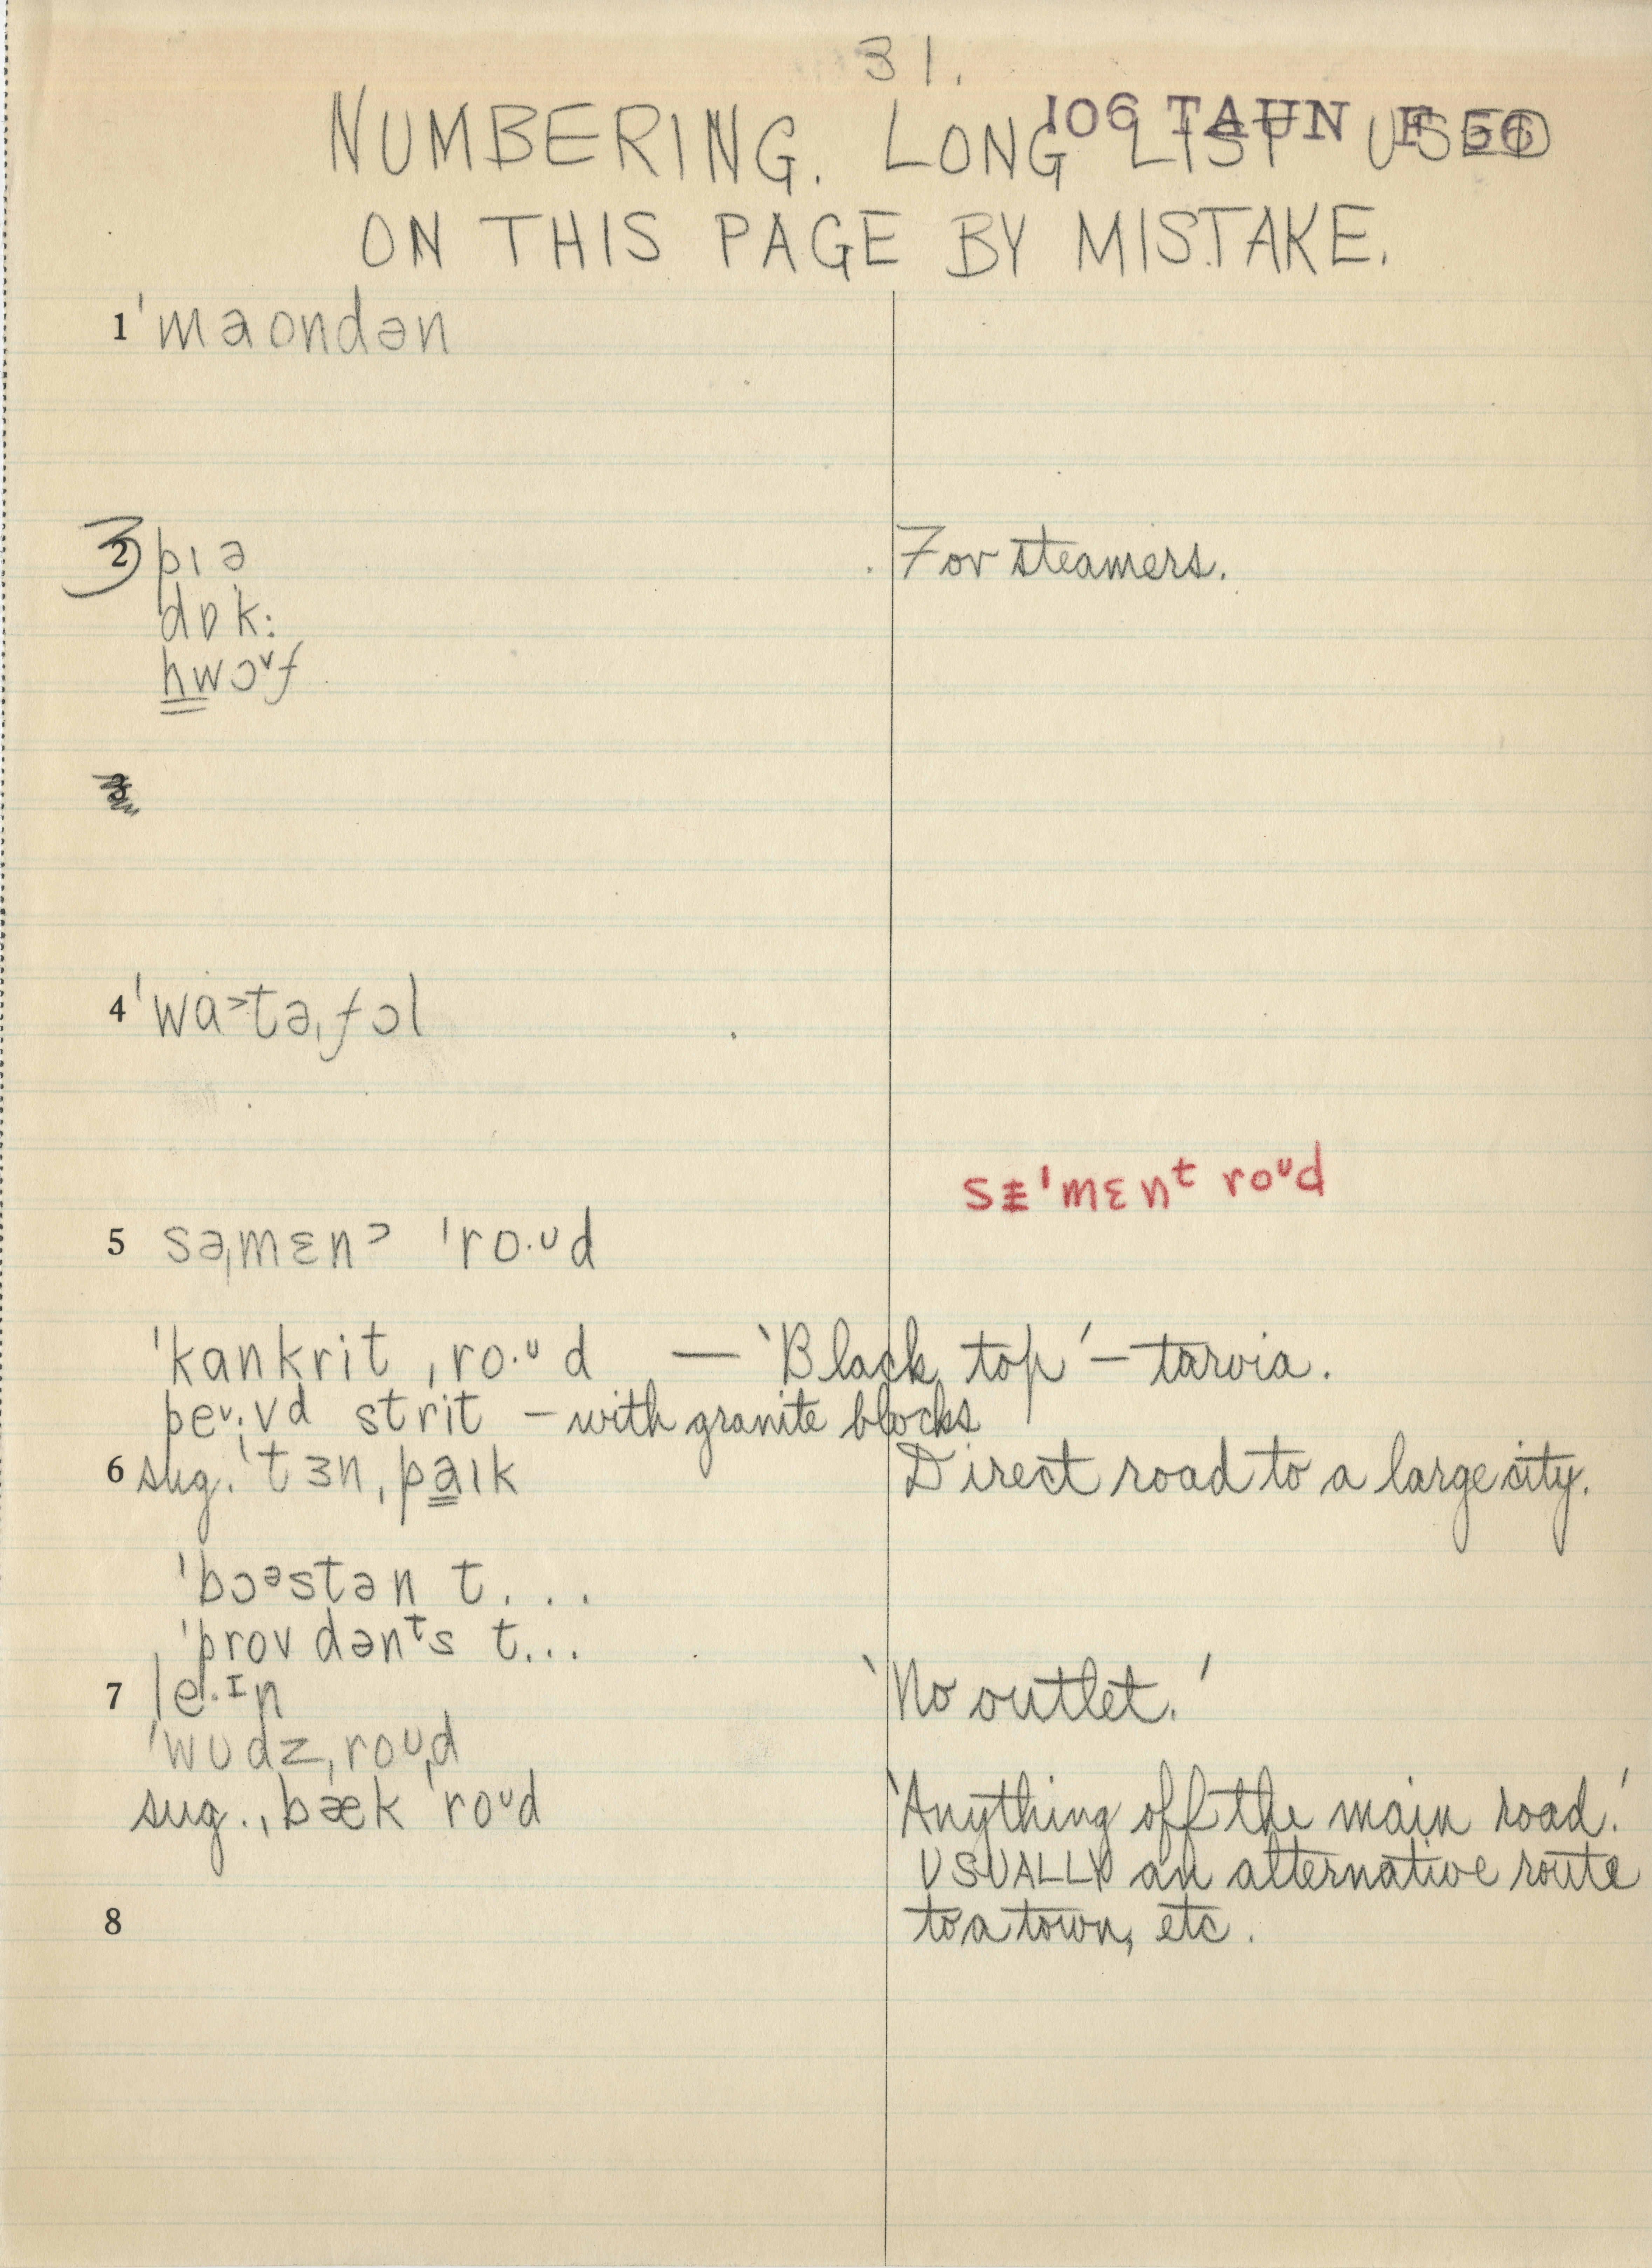 31.
106 TAUN F 56
NUMBERING. LONG LIST USED
ON THIS PAGE BY MISTAKE.
1 ˈmaondən
3 2 pɪə For steamers.
dɒk:
hwɔᵛf
3
4 ˈwɑ˃təˌfɔl
sɪˈmɛnᵗ roᶷd
5 səˌmɛnˀ ˈro·ᶷd
ˈkankrit ˌro·ᶷd — ‘Black top’ – tarvia.
peᵛ·vd strit – with granite blocks
6 sug. ˈtɜnˌpaɪk Direct road to a large city.
ˈbɔᵊstən t...
ˈprovdənᵗs t...
7 le·ɪn ‘No outlet.’
ˈwudzˌroᶷd
sug. ˌbæk ˈroᶷd ‘Anything off the main road.’
USUALLY an alternative route
8 to a town, etc.